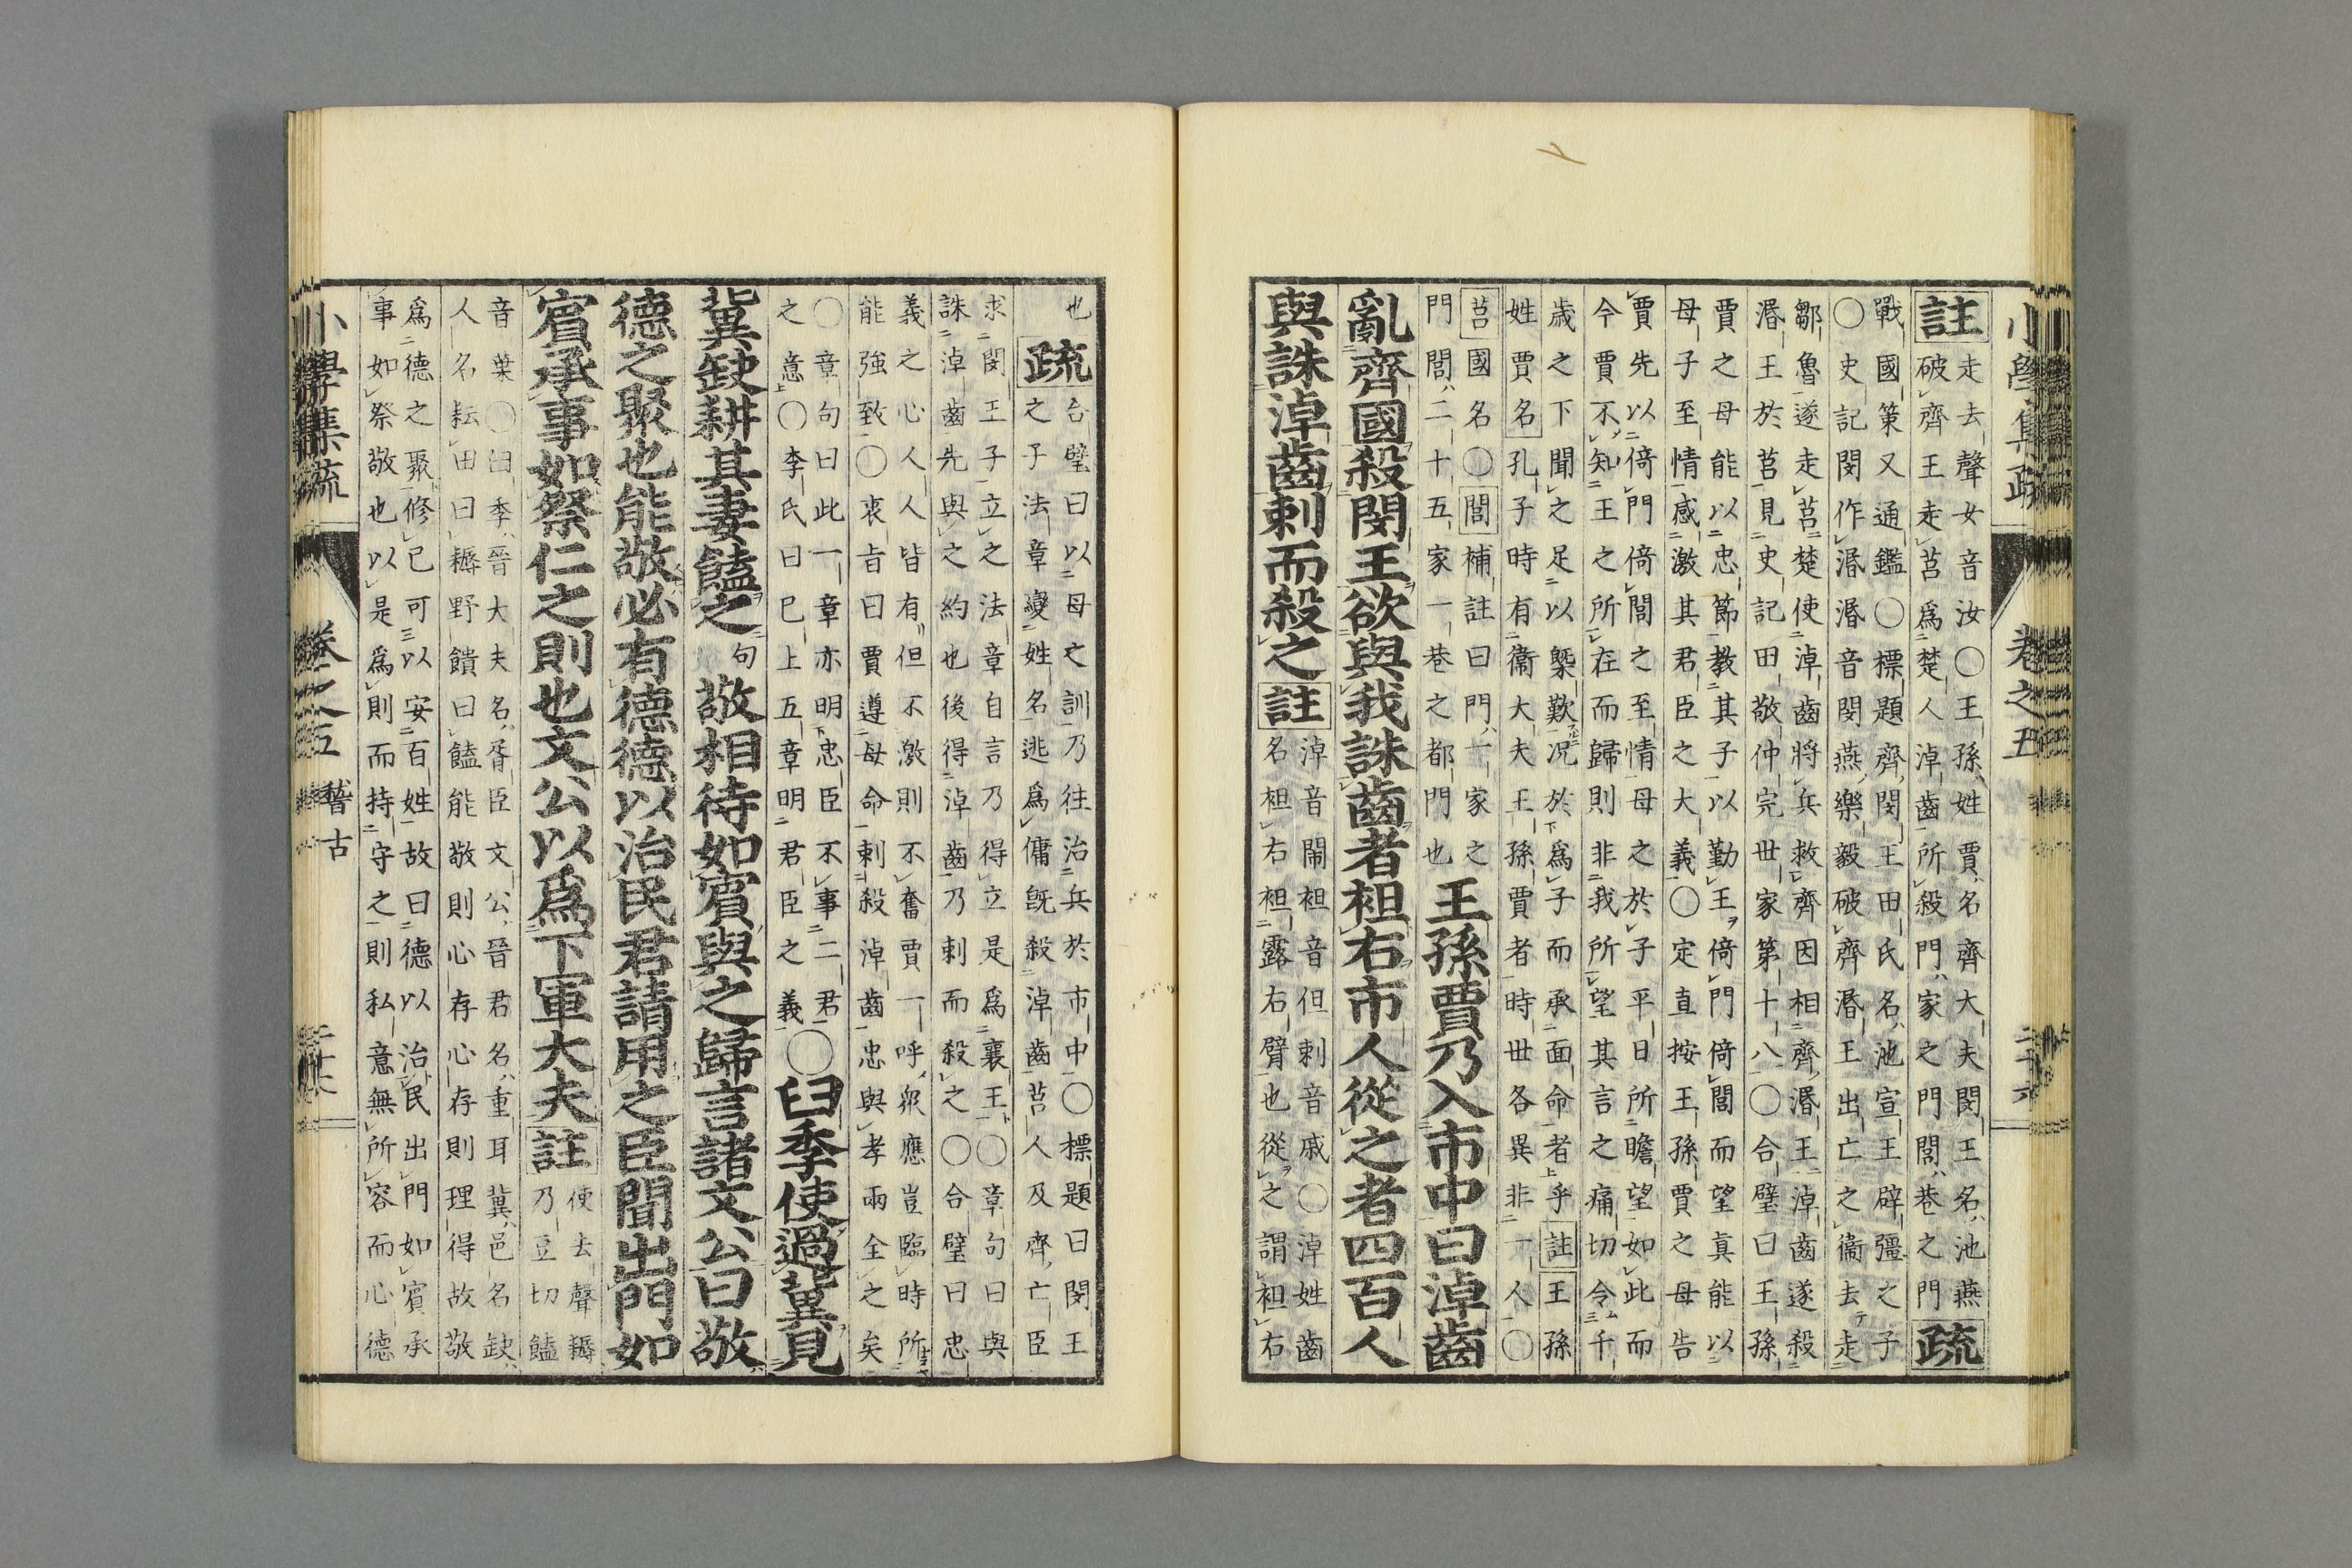 小學集疏　卷之五　二十六
註
走去聲女音汝○王孫姓賈名齊大夫閔王名池燕
破齊王走莒爲楚人淖齒所殺門家之門閭巷之門
疏
戰國策又通鑑○標題齊閔王田氏名池宣王辟彊之子
○史記閔作湣湣音閔燕樂毅破齊湣王出亡之衞去走
鄒魯遂走莒楚使淖齒將兵救齊因相齊湣王淖齒遂殺
湣王於莒見史記田敬仲完世家第十八○合璧曰王孫
賈之母能以忠節教其子以勤王倚門倚閭而望眞能以
母子至情感激其君臣之大義○定直按王孫賈之母告
賈先以倚門倚閭之至情母之於子平日所瞻望如此而
今賈不知王之所在而歸則非我所望其言之痛切令千
歲之下聞之足以槩歎况於爲子而承面命者乎註王孫
姓賈名孔子時有衞大夫王孫賈者時世各異非一人○
莒國名○閭補註曰門一家之
門閭二十五家一巷之都門也
王孫賈乃入市中曰淖齒
亂齊國殺閔王欲與我誅齒者袒右市人從之者四百人
與誅淖齒刺而殺之註
淖音閙袒音但刺音戚○淖姓齒
名袒右袒露右臂也從之謂袒右
也
疏
合璧曰以母之訓乃往治兵於市中○標題曰閔王
之子法章變姓名逃爲傭旣殺淖齒莒人及齊亡臣
求閔王子立之法章自言乃得立是爲襄王○章句曰與
誅淖齒先與之約也後得淖齒乃刺而殺之○合璧曰忠
義之心人人皆有但不激則不奮賈一呼衆應豈臨時所
能強致○衷旨曰賈遵母命刺殺淖齒忠與孝兩全之矣
○章句曰此一章亦明忠臣不事二君
之意○李氏曰已上五章明君臣之義
○臼季使過冀見
冀缺耕其妻饁之句敬相待如賓與之歸言諸文公曰敬
德之聚也能敬必有德德以治民君請用之臣聞出門如
賓承事如祭仁之則也文公以爲下軍大夫註
使去聲耨
乃豆切饁
音葉○臼季晉大夫名胥臣文公晉君名重耳冀邑名缺
人名耘田曰耨野饋曰饁能敬則心存心存則理得故敬
爲德之聚修已可以安百姓故曰德以治民出門如賓承
事如祭敬也以是爲則而持守之則私意無所容而心德
小學集疏　卷之五　稽古　二十六